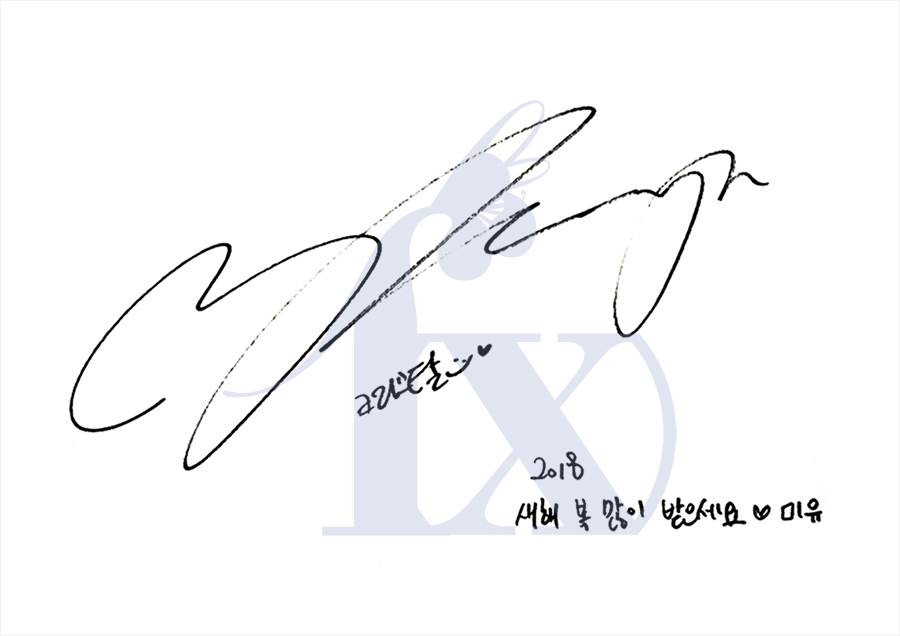 크리스탈 ♥
2018
새해 복 많이 받으세요 ♥ 미유
fx